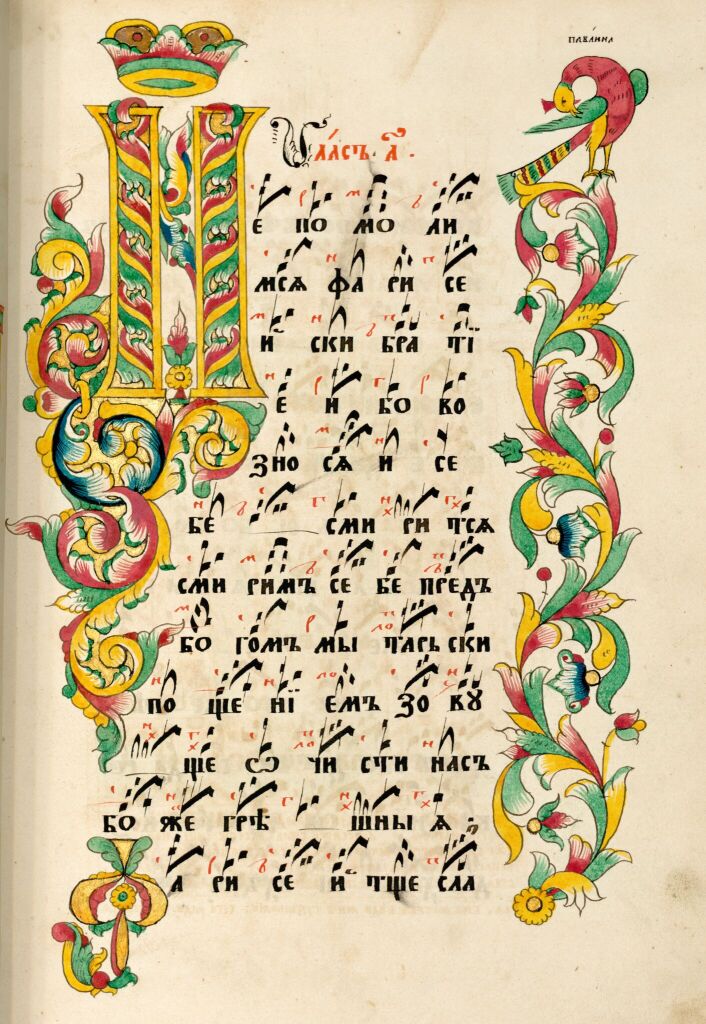 павли́на
Гла́съ а҃.
Не по мо ли
мсѧ фа ри се
й ски бра тї
е и бо во
зно сѧ и се
бе сми ри тсѧ
сми римъ се бе предъ
бо гомъ мы тарь ски
по ще нї емъ зо вꙋ
ще ѡ чи сти насъ
бо же грѣ шны ѧ
Фа ри се й тще сла